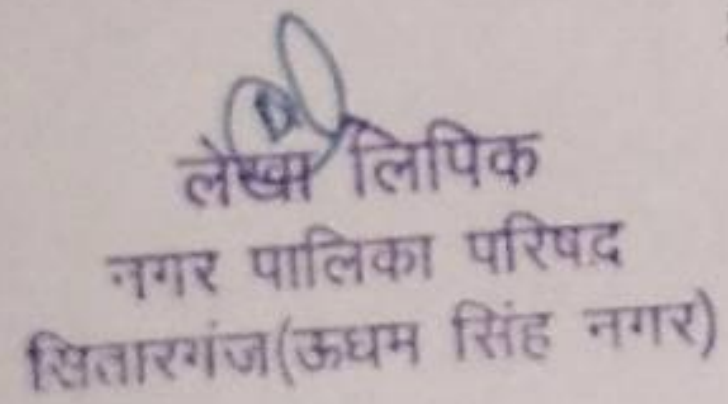 लेखा लिपिक
नगर पालिका परिषद
सितारगंज(ऊधम सिंह नगर)